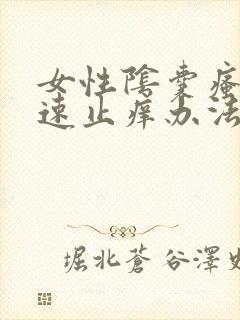 女性陰囊瘙
速止痒办法
堀北蒼谷澤